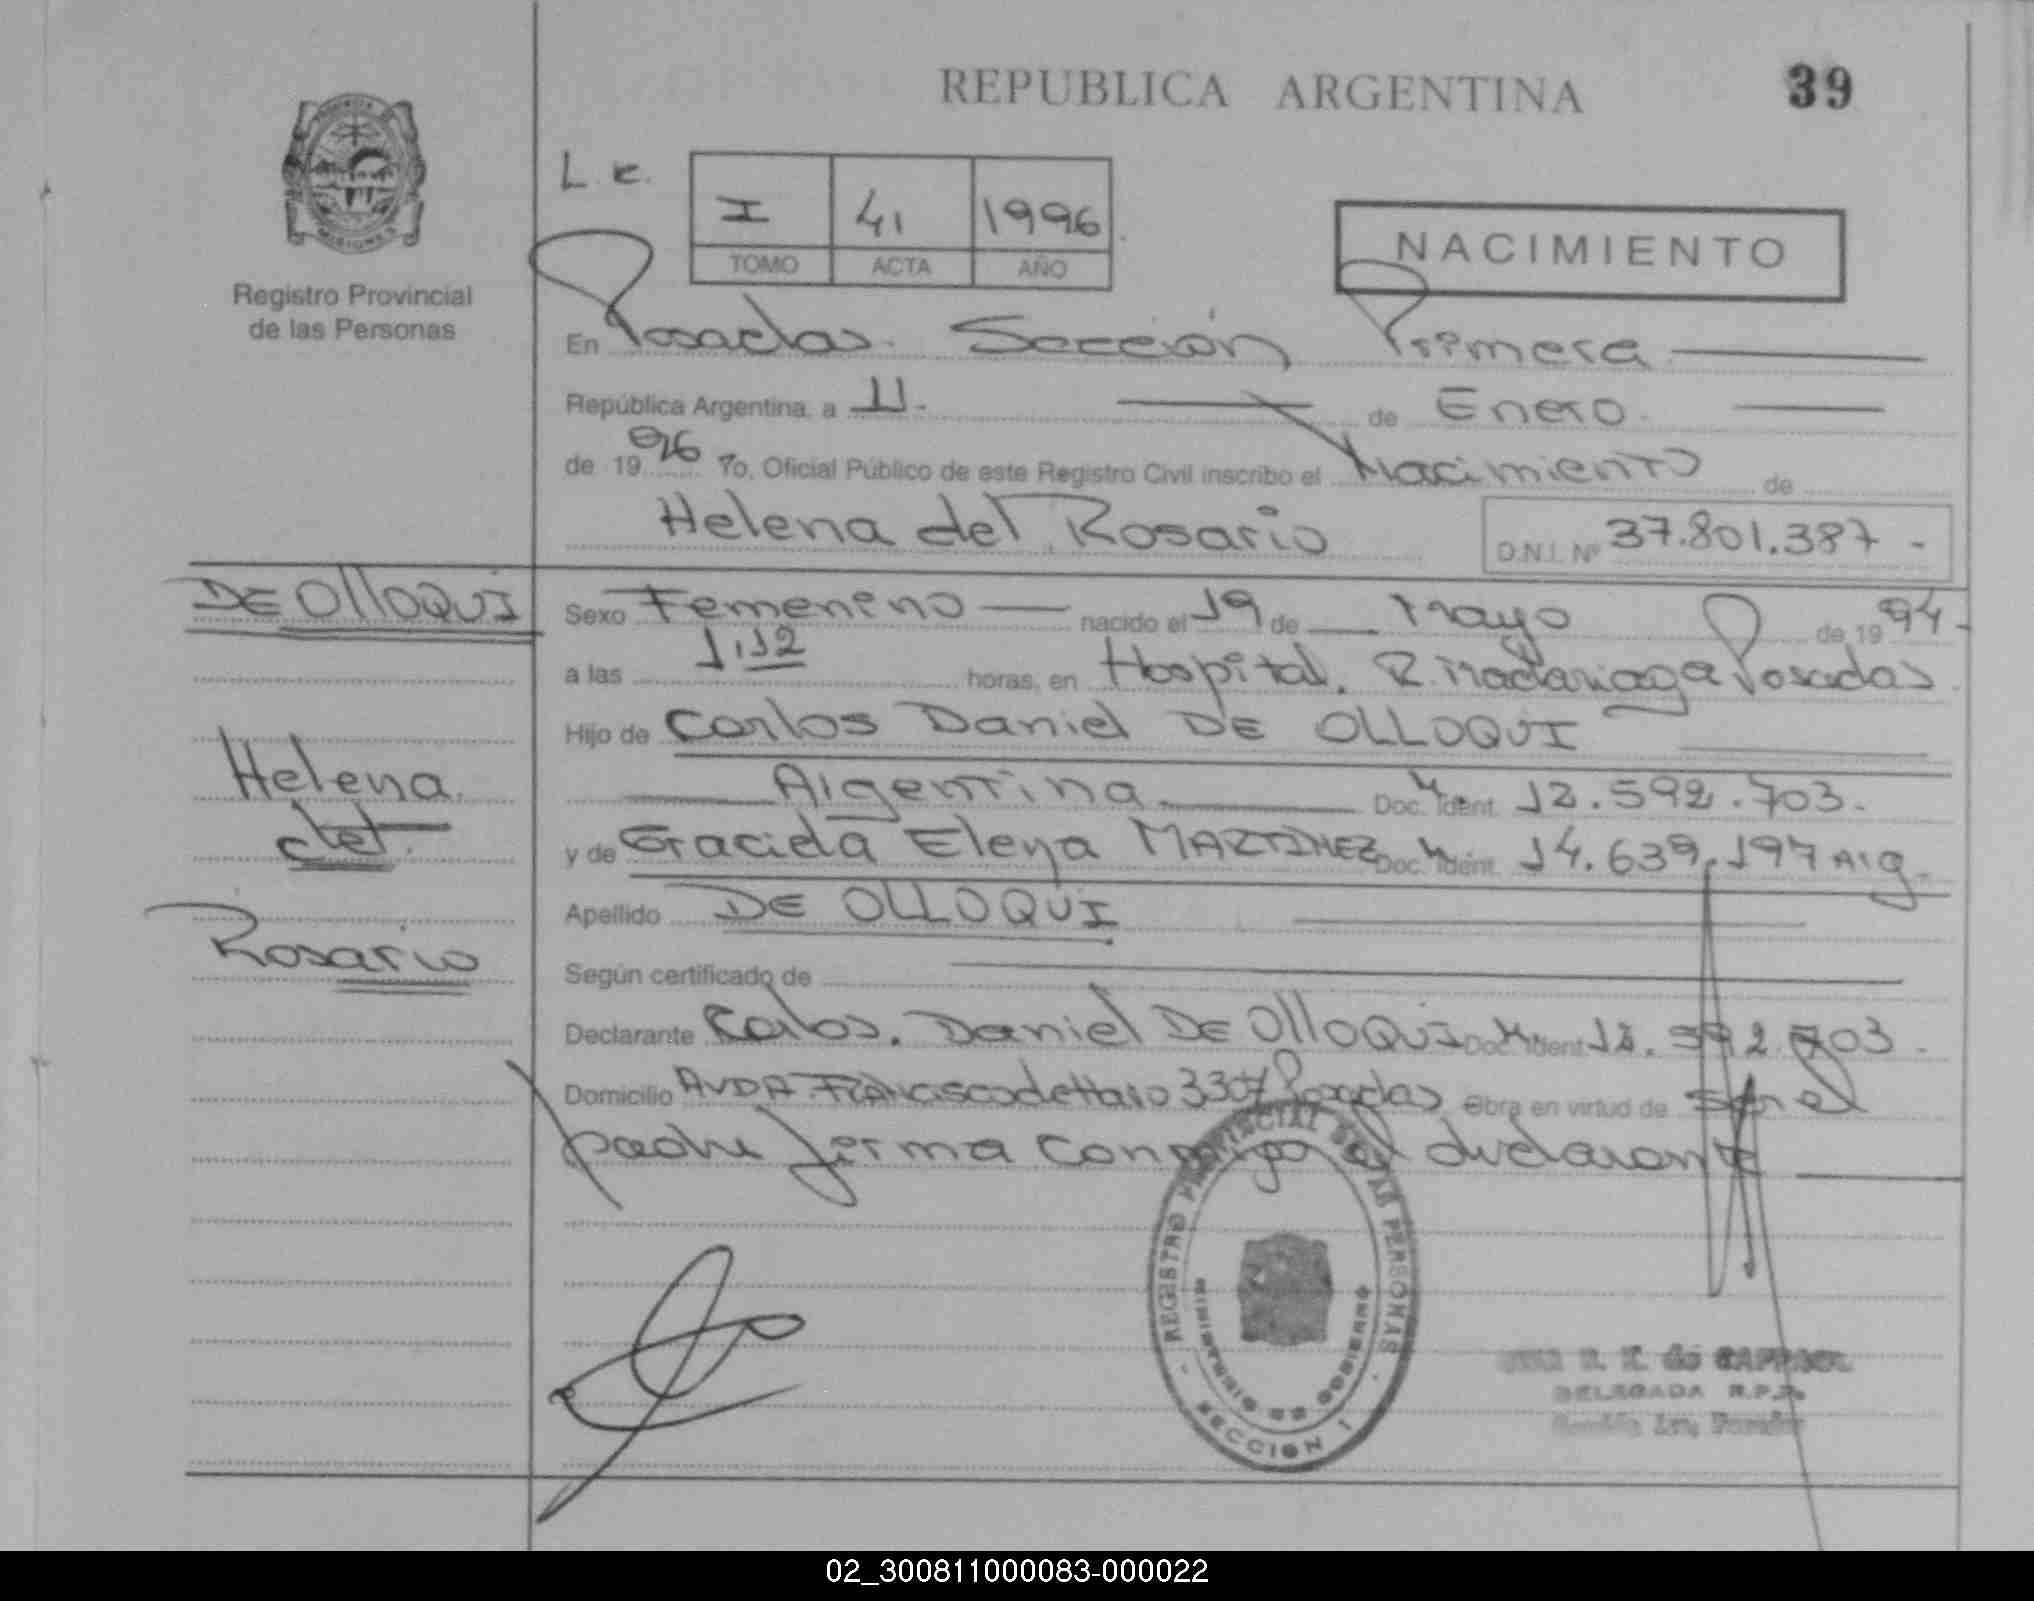 REPUBLICA ARGENTINA
39
PROVINCIA
MISIONES
Registro Provincial
de las Personas
I 41 1996
TOMO ACTA AÑO
NACIMIENTO
En Posadas. Sección Primera
República Argentina, a 11. de Enero.
de 1996 Yo, Oficial Público de este Registro Civil inscribo el Nacimiento de
Helena del Rosario D.N.I. Nº 37.801.387 -
DE OllOQUI
Helena
del.
Rosario
Sexo Femenino nacido el 19 de Mayo de 1994-
a las 1,12 horas, en Hospital. R. Madariaga Posadas
Hijo de Carlos Daniel DE OLLOQUI
Argentina Doc. Ident. 12.592.703.
y de Graciela Elena MARTINEZ Doc. Ident. 14.639.197 Arg.
Apellido DE OLLOQUI
Según certificado de
Declarante Carlos. Daniel DE OllOQUI Doc. Ident 12.592.703.
Domicilio AVDA. Francisco de Haro 3307 Posadas Obra en virtud de ser el
padre firma conmigo el declarante
REGISTRO PROVINCIAL DE LAS PERSONAS
MINISTERIO DE GOBIERNO
SECCION 1
DELEGADA R.P.P.
02_300811000083-000022